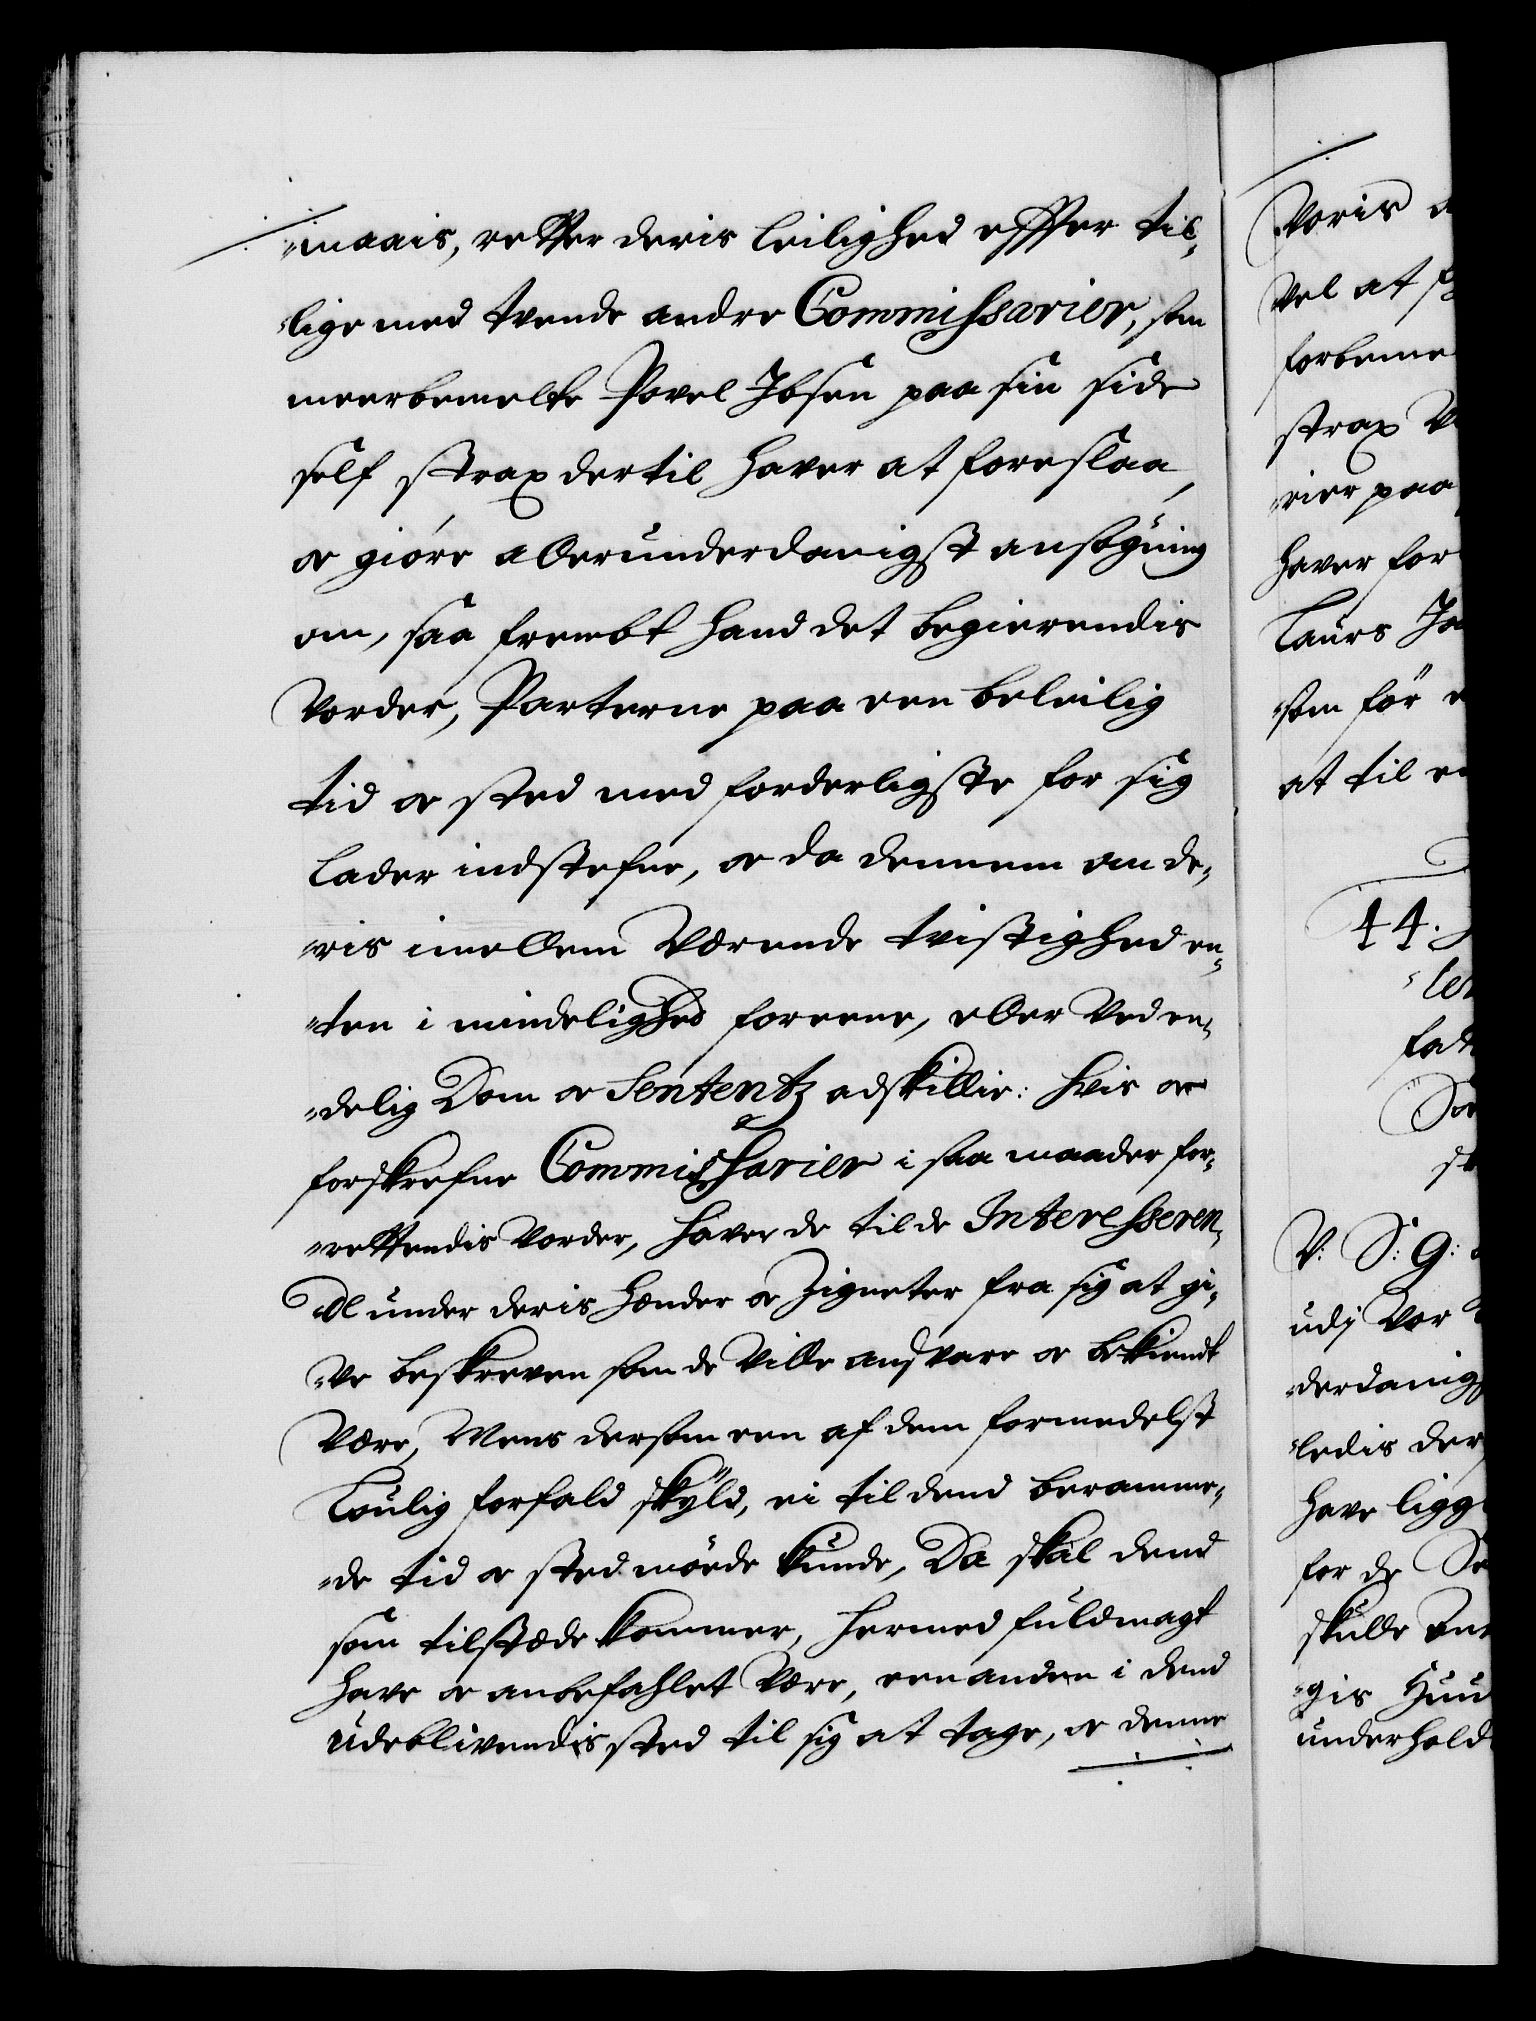 maais, retter deris leilighed effter til-
lige med tvende andre Commissarier, som
meerbemelte Povel Ibsen paa sin side
self strax dertil haver at foreslaa,
oc giøre allerunderdanigst ansøgning
om, saa frembt hand det begierendis
vorder, Parterne paa een beleilig
tid oc sted med forderligste for sig
lader indstefne, oc da dennem om de-
ris imellem værende tvistighed en-
ten i mindelighed foreene, eller ved en-
delig Dom oc Sententz adskillie: hvis oc
forskrefne Commissarier i saa maader for-
rettendis vorder, haver de til de Interesseren-
de under deris Hænder oc Zigneter fra sig at gi-
ve beskreven som de ville ansvare oc bekiendt
være, Mens dersom een af dem formedelst
Loulig forfald skÿld, ei til dend beramme-
de tid oc sted møde kunde, Da skal dend
som tilstæde kommer, hermed fuldmagt
have oc anbefahlet være, een anden i dend
udeblivendis sted til sig at tage, oc denne
Voris
vel at
forbeme
strax
rier paa
haver for
Laurs
som før
at til
44.
V: S: G:
udj Vor
derdanig
ledis der
have ligg
for de
skulle
gis
underhold